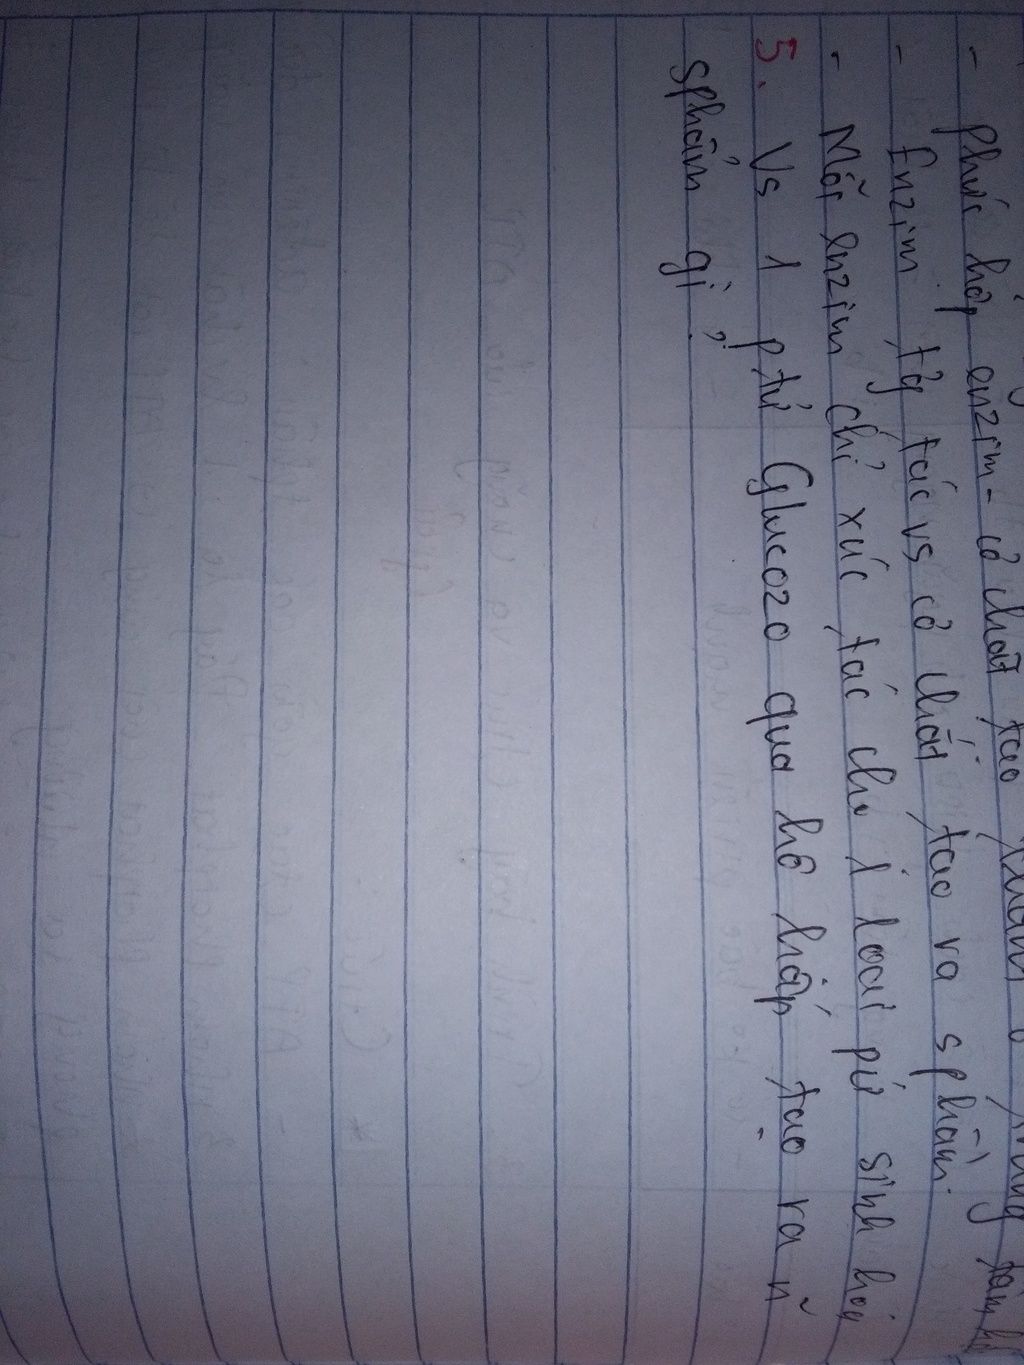 - Phức hợp enzim - cơ chất tạo thành ở trung tâm
- Enzim tg tác vs cơ chất tạo ra sphẩm.
- Mỗi enzim chỉ xúc tác cho 1 loại pứ sinh hóa
5. Vs 1 ptử Glucozo qua hô hấp tạo ra n~
sphẩm gì?